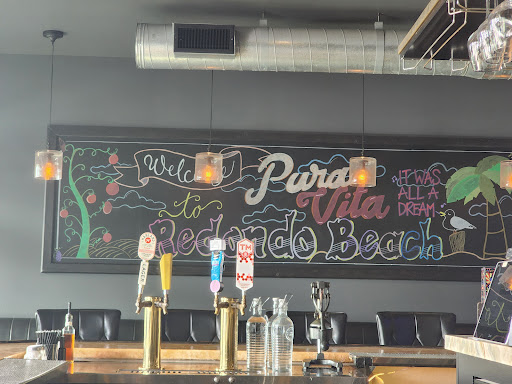 Welcome
to
Pura
Vita
Redondo Beach
IT WAS
ALL A
DREAM
TM